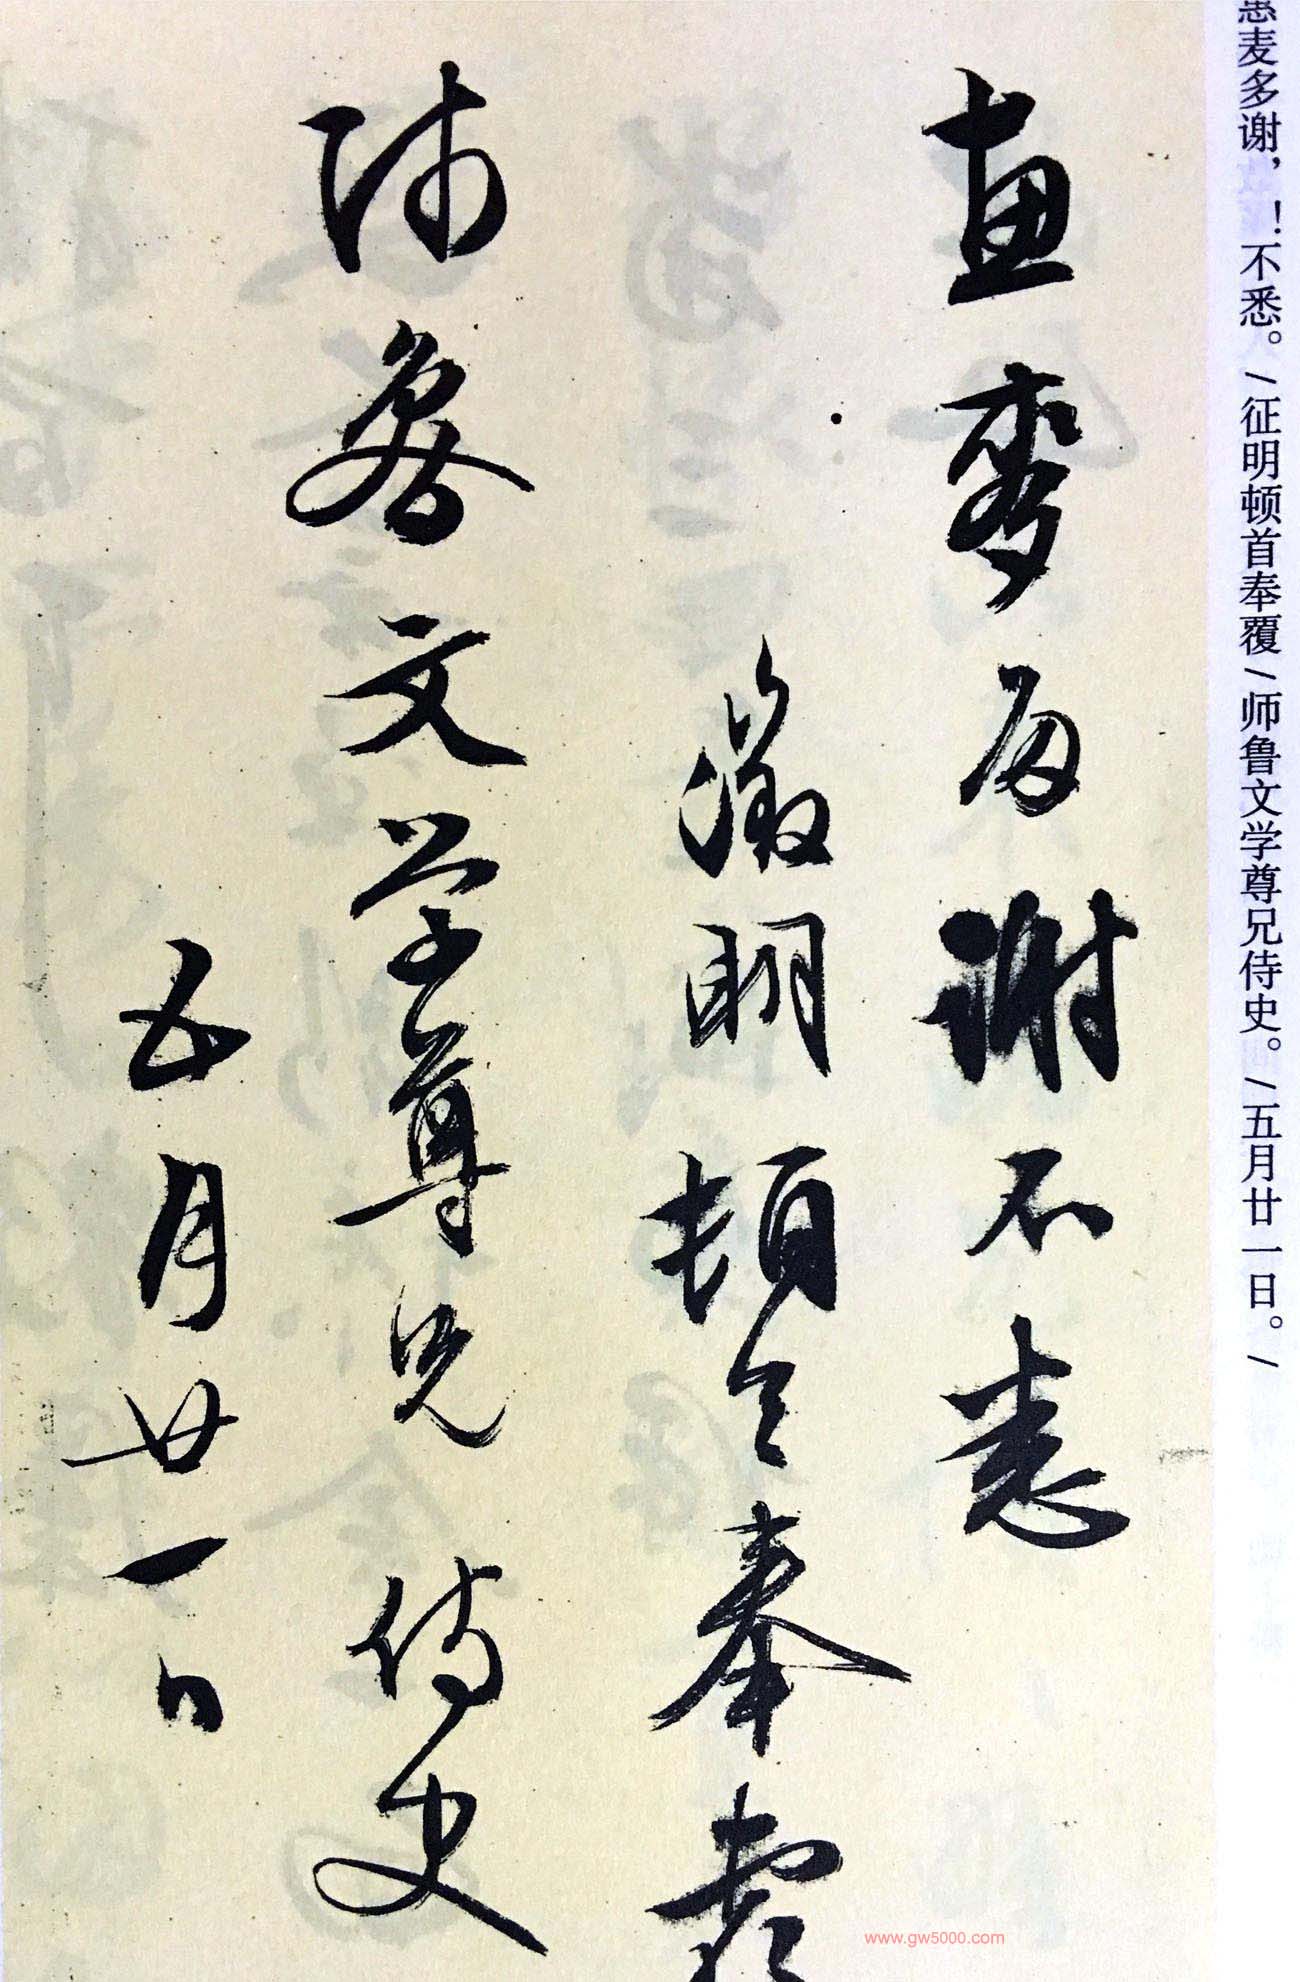 惠麦多谢，！不悉。/征明顿首奉覆/师鲁文学尊兄侍史。/五月廿一日。/
惠麥多謝不悉
徵明頓首奉覆
師魯文学尊兄侍史
五月廿一日
www.gw5000.com